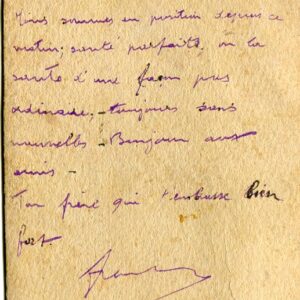 Nous sommes en position depuis ce
matin; santé parfaite, on la
saute d'une façon pas
ordinaire. - toujours sans
nouvelles - Bonjour aux
amis -
Ton frère qui t'embrasse bien
fort